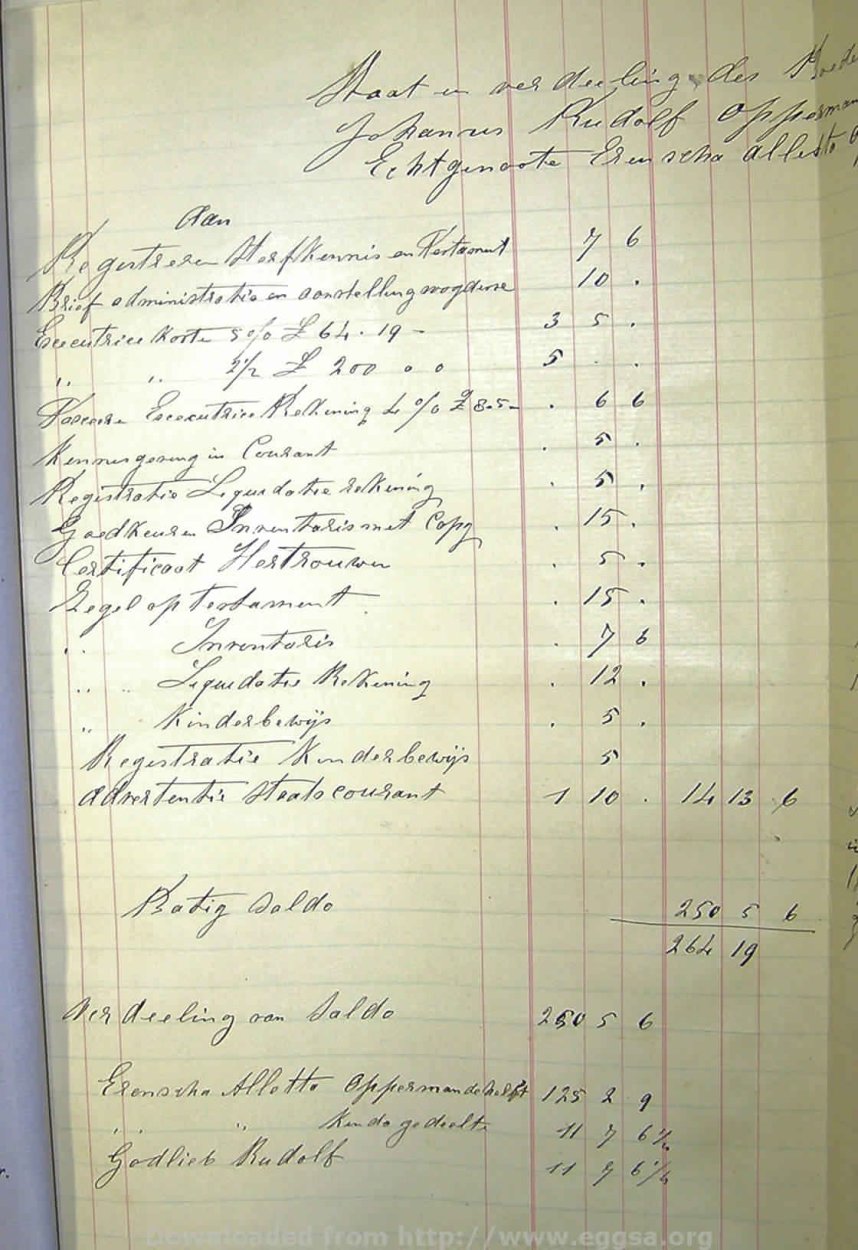 Staat en verdeeling des Boede
Johannes Rudolf Opperman
Echtgenoote Erenscha Alletta
Aan
Registreren Sterfkennis en Testament 7 6
Brief administratie en aanstelling voogdesse 10 .
Executrice Koste 5 o/o £ 64 . 19 - 3 5 .
" " 2 1/2 £ 200 0 0 5 . .
Executrice Rekening 4 % £ 8.5 - . 6 6
Kennisgeving in Courant . 5 .
Registratie Liquidatie rekening . 5 .
Goedkeuren Inventaris met Copy . 15 .
Certificaat Hertrouwen . 5 .
Zegel op testament . 15 .
" Inventaris . 7 6
" " Liquidatie Rekening . 12 .
" Kinderbewijs . 5 .
Registratie Kinderbewijs 5
Advertentie Staatscourant 1 10 . 14 13 6
Batig Saldo 250 5 6
264 19
Verdeeling van Saldo 250 5 6
Erenscha Alletta Opperman de helft 125 2 9
" " " Kinds gedeelte 11 7 6 1/2
Godlieb Rudolf 11 7 6 1/2
Downloaded from http://www.eggsa.org